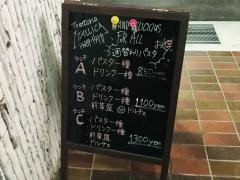 Trattoria
ITALLICA
HAND
DELICIOUS
FOR ALL
3週替わりパスタ
ランチ
A
・パスタ一種
・ドリンク一種
850yen
ランチ
B
・パスタ一種
・ドリンク一種
・前菜盛 or ドルチェ
1100yen
ランチ
C
・パスタ一種
・ドリンク一種
・前菜盛
・ドルチェ
1300yen